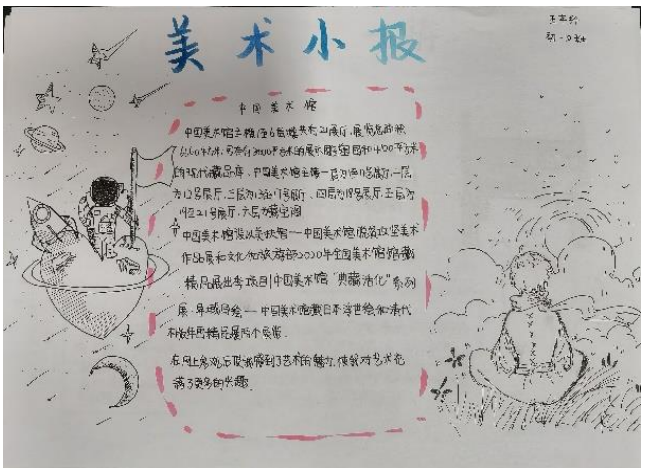 美术小报
中国美术馆
中国美术馆主楼座6层楼共有21展厅,展览总面积
6660平方米,另有3000平方米的展示雕塑园和4100平方米
的现代藏品库,中国美术馆主楼一层为厅,一层
为厅,三层为13至17号展厅,四层为18号展厅,五层为
19至21号展厅,六层为藏宝阁
中国美术馆一一中国美术馆脱贫攻坚美术
作品展和文化和旅游部2020年全国美术馆馆藏
精品展出季项目|中国美术馆“典藏活化”系列
展·浮绘一一中国美术馆藏日本浮世绘和清代
木版年画精品展两个展览.
在网上参观后我感到了艺术的魅力,使我对艺术充
满了更多的兴趣.